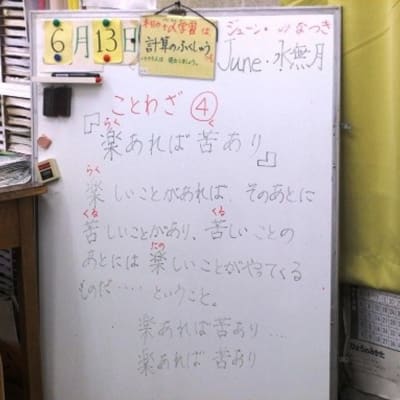 6月13日
計算のふくしゅう
ジューン・なつき
June・水無月
ことわざ ④
『楽あれば苦あり』
らく
く
楽しいことがあれば、そのあとに
らく
苦しいことがあり、苦しいことの
くる
くる
あとには楽しいことがやってくる
たの
ものだ‥‥ということ。
楽あれば苦あり‥‥
楽あれば苦あり